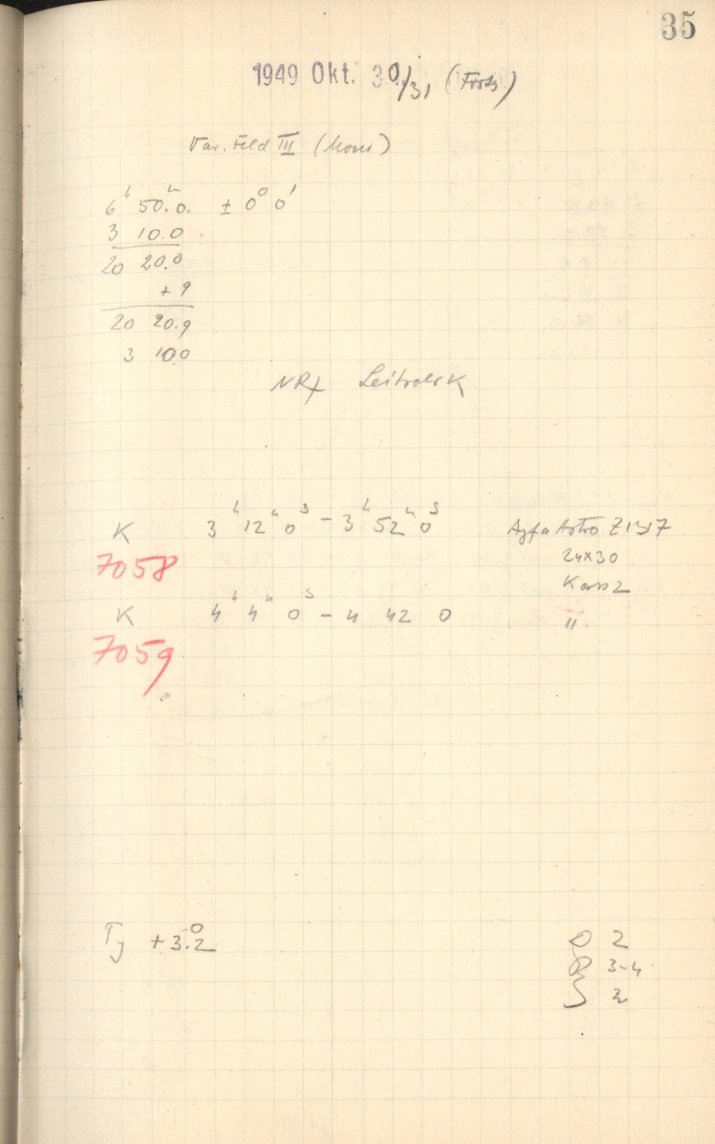 35
1949 Okt. 30/31 (Frost)
Var. Feld III (Mons)
6h 50.0m ± 0° 0'
3 10.0
20 20.0
+ 9
20 20.9
3 10.0
NRf Leitrohr K
K 3h 12m 0s - 3h 52m 0s Agfa Astro Z1317
7058
24x30
Kass 2
K 4h 4m 0s - 4 42 0 "
7059
Tj +3.2°
D 2
R 3-4
S 2